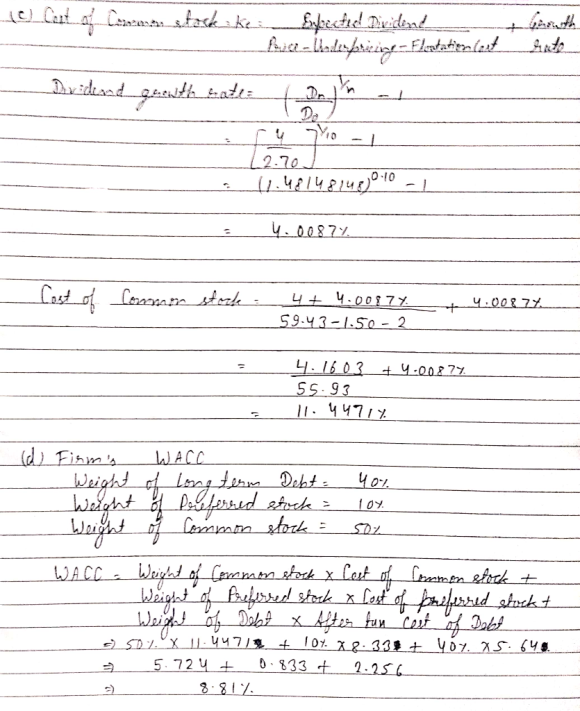 (c) Cost of Common stock = Ke = Expected Dividend + Growth
Price - Underpricing - Floatation Cost rate
Dividend growth rate = (Dn / D0)^1/n - 1
= [4 / 2.70]^1/10 - 1
= (1.48148148)^0.10 - 1
= 4.0087%
Cost of Common stock = 4 + 4.0087% + 4.0087%
59.43 - 1.50 - 2
= 4.1603 + 4.0087%
55.93
= 11.4471%
(d) Firm's WACC
Weight of Long term Debt = 40%
Weight of Preferred stock = 10%
Weight of Common stock = 50%
WACC = Weight of Common stock x Cost of Common stock +
Weight of Preferred stock x Cost of preferred stock +
Weight of Debt x After tax cost of Debt
⇒ 50% x 11.4471 + 10% x 8.33 + 40% x 5.64
⇒ 5.724 + 0.833 + 2.256
⇒ 8.81%